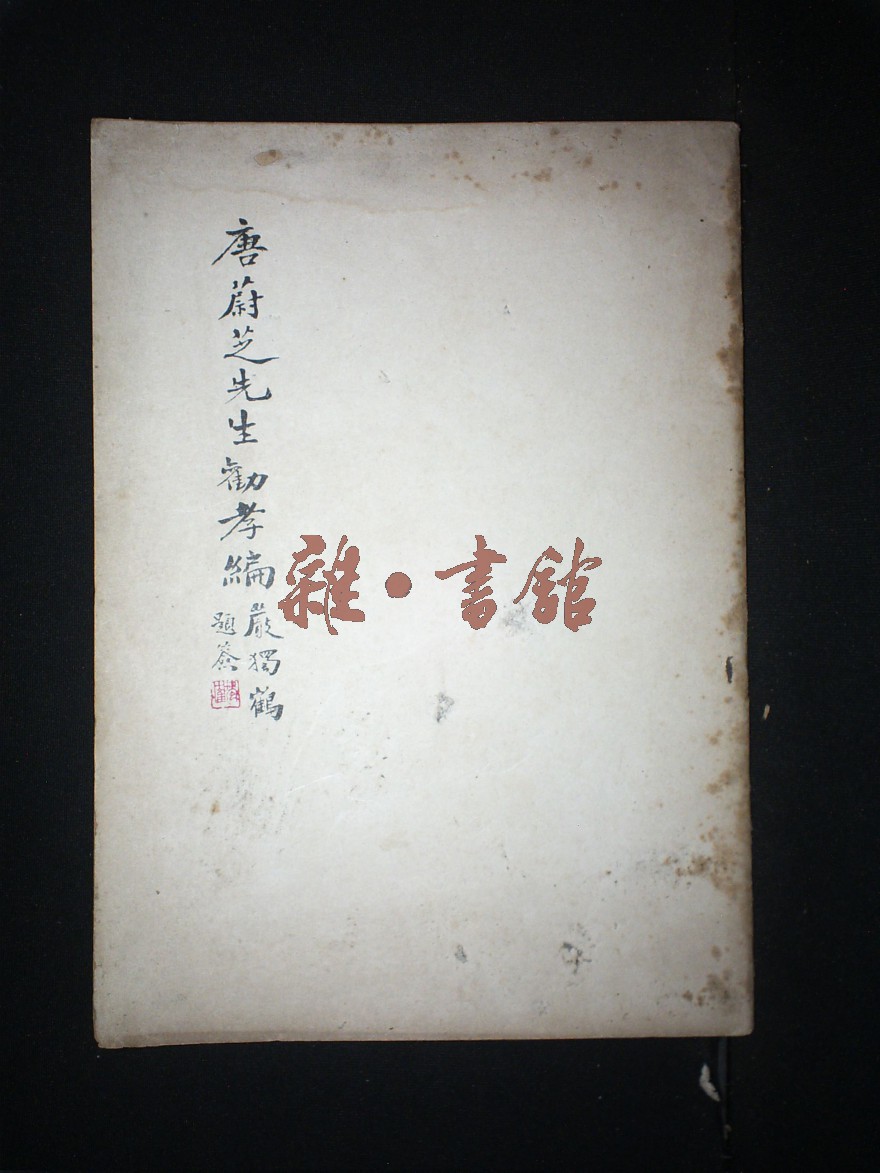 唐蔚芝先生勸孝編
嚴獨鶴
題簽
雜·書館